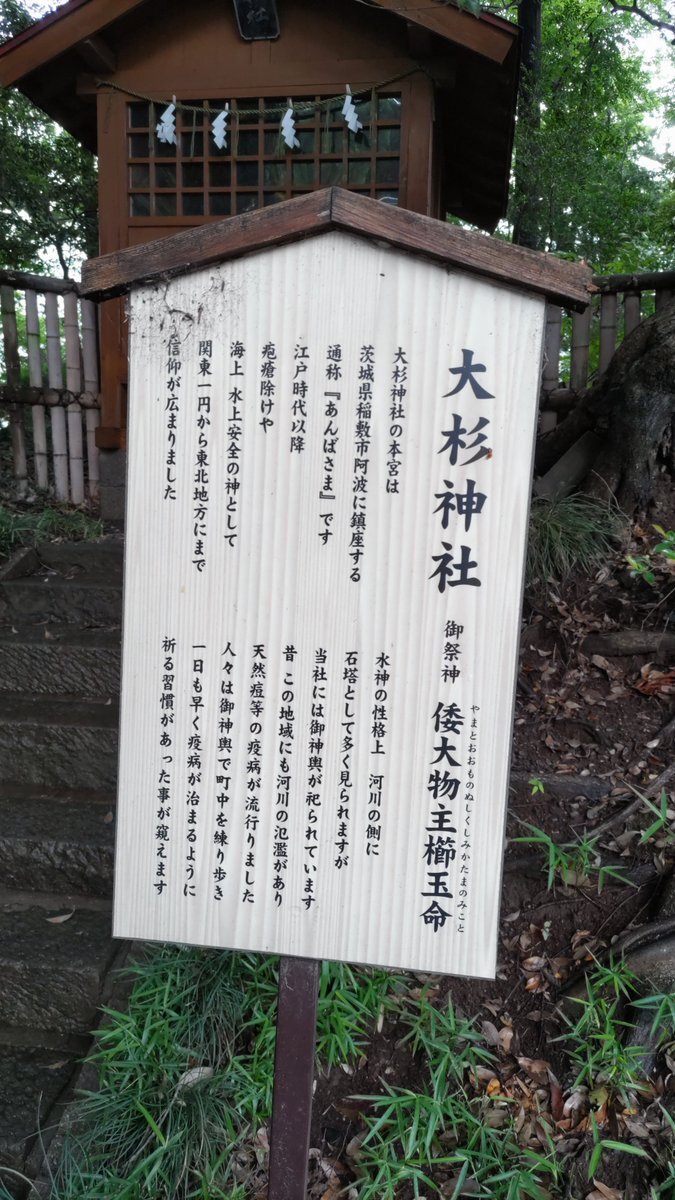 大杉神社
御祭神 倭大物主櫛玉命
やまとおおものぬしくしみかたまのみこと
大杉神社の本宮は
茨城県稲敷市阿波に鎮座する
通称『あんばさま』です
江戸時代以降
疱瘡除けや
海上 水上安全の神として
関東一円から東北地方にまで
信仰が広まりました
水神の性格上 河川の側に
石塔として多く見られますが
当社には御神輿が祀られています
昔 この地域にも河川の氾濫があり
天然痘等の疫病が流行りました
人々は御神輿で町中を練り歩き
一日も早く疫病が治まるように
祈る習慣があった事が窺えます
社